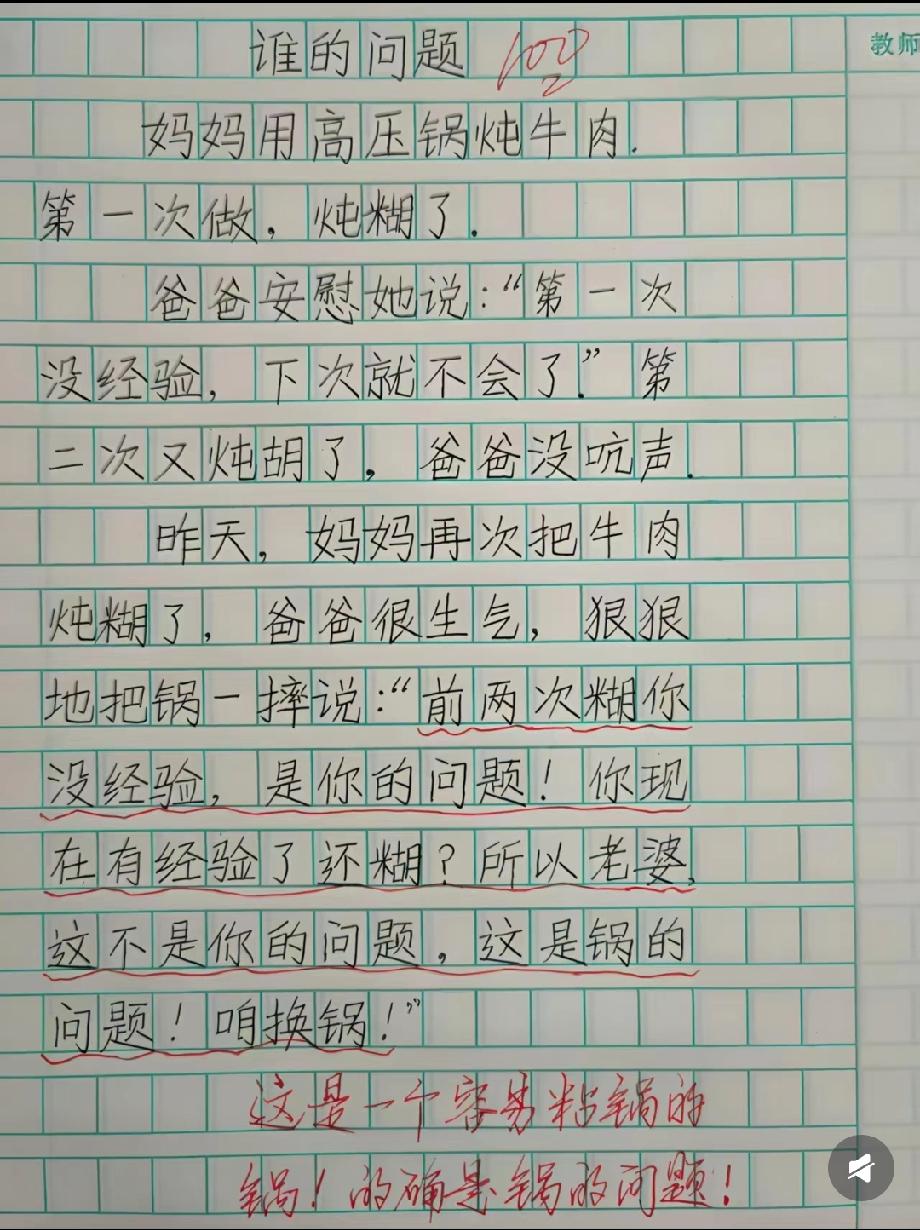 谁的问题 100
教师
妈妈用高压锅炖牛肉.
第一次做，炖糊了.
爸爸安慰她说：“第一次
没经验，下次就不会了.”第
二次又炖胡了，爸爸没吭声.
昨天，妈妈再次把牛肉
炖糊了，爸爸很生气，狠狠
地把锅一摔说：“前两次糊你
没经验，是你的问题！你现
在有经验了还糊？所以老婆，
这不是你的问题，这是锅的
问题！咱换锅！”
这是一个容易粘锅的
锅！的确是锅的问题！